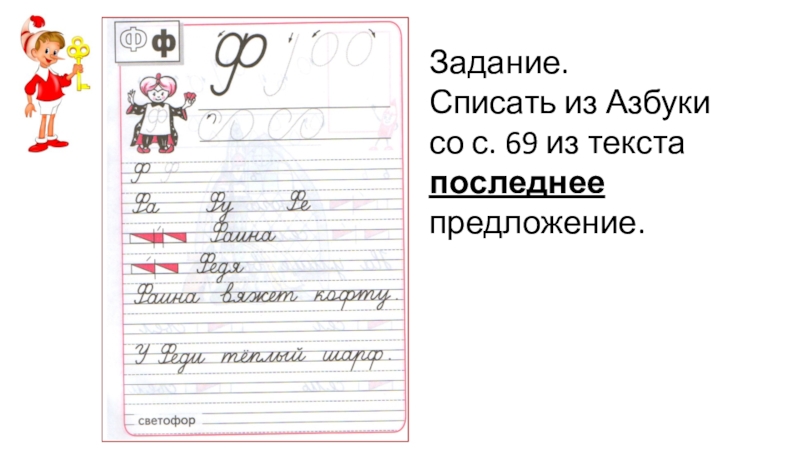 Ф ф
Ф
Ф
Ф Ф
Фа Фу Фе
Фаина
Федя
Фаина вяжет кофту.
У Феди тёплый шарф.
светофор
Задание.
Списать из Азбуки
со с. 69 из текста
последнее
предложение.